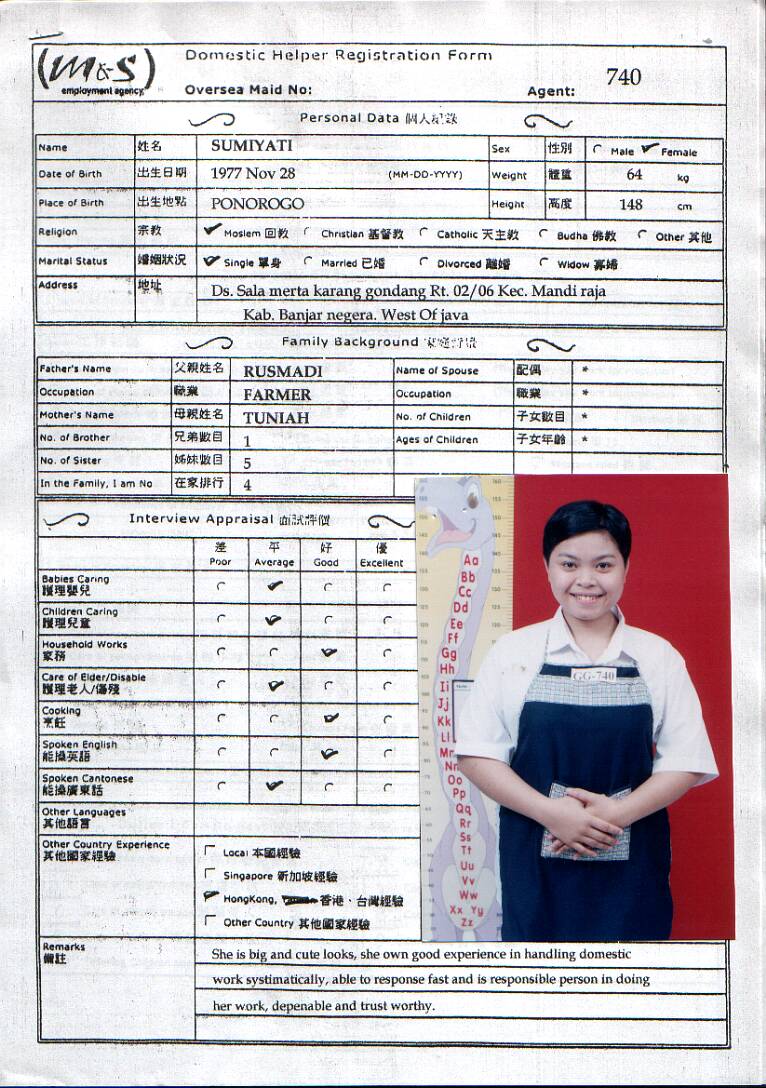 (M&S)
employment agency
Domestic Helper Registration Form
Oversea Maid No:
Agent: 740
Personal Data 個人紀錄
Name 姓名 SUMIYATI Sex 性別 Male Female
Date of Birth 出生日期 1977 Nov 28 (MM-DD-YYYY) Weight 體重 64 kg
Place of Birth 出生地點 PONOROGO Height 高度 148 cm
Religion 宗教 Moslem 回教 Christian 基督教 Catholic 天主教 Budha 佛教 Other 其他
Marital Status 婚姻狀況 Single 單身 Married 已婚 Divorced 離婚 Widow 寡婦
Address 地址 Ds. Sala merta karang gondang Rt. 02/06 Kec. Mandi raja
Kab. Banjar negera. West Of java
Family Background 家庭背景
Father's Name 父親姓名 RUSMADI Name of Spouse 配偶 *
Occupation 職業 FARMER Occupation 職業 *
Mother's Name 母親姓名 TUNIAH No. of Children 子女數目 *
No. of Brother 兄弟數目 1 Ages of Children 子女年齡 *
No. of Sister 姊妹數目 5
In the Family, I am No 在家排行 4
Interview Appraisal 面試評價
差 平 好 優
Poor Average Good Excellent
Babies Caring
護理嬰兒
Children Caring
護理兒童
Household Works
家務
Care of Elder/Disable
護理老人/傷殘
Cooking
烹飪
Spoken English
能操英語
Spoken Cantonese
能操廣東話
Other Languages
其他語言
Other Country Experience
其他國家經驗
Local 本國經驗
Singapore 新加坡經驗
HongKong, 香港、台灣經驗
Other Country 其他國家經驗
Aa
Bb
Cc
Dd
Ee
Ff
Gg
Hh
Ii
Jj
Kk
Ll
Mm
Nn
Oo
Pp
Qq
Rr
Ss
Tt
Uu
Vv
Ww
Xx Yy
Zz
GG-740
Remarks
備註
She is big and cute looks, she own good experience in handling domestic
work systimatically, able to response fast and is responsible person in doing
her work, depenable and trust worthy.